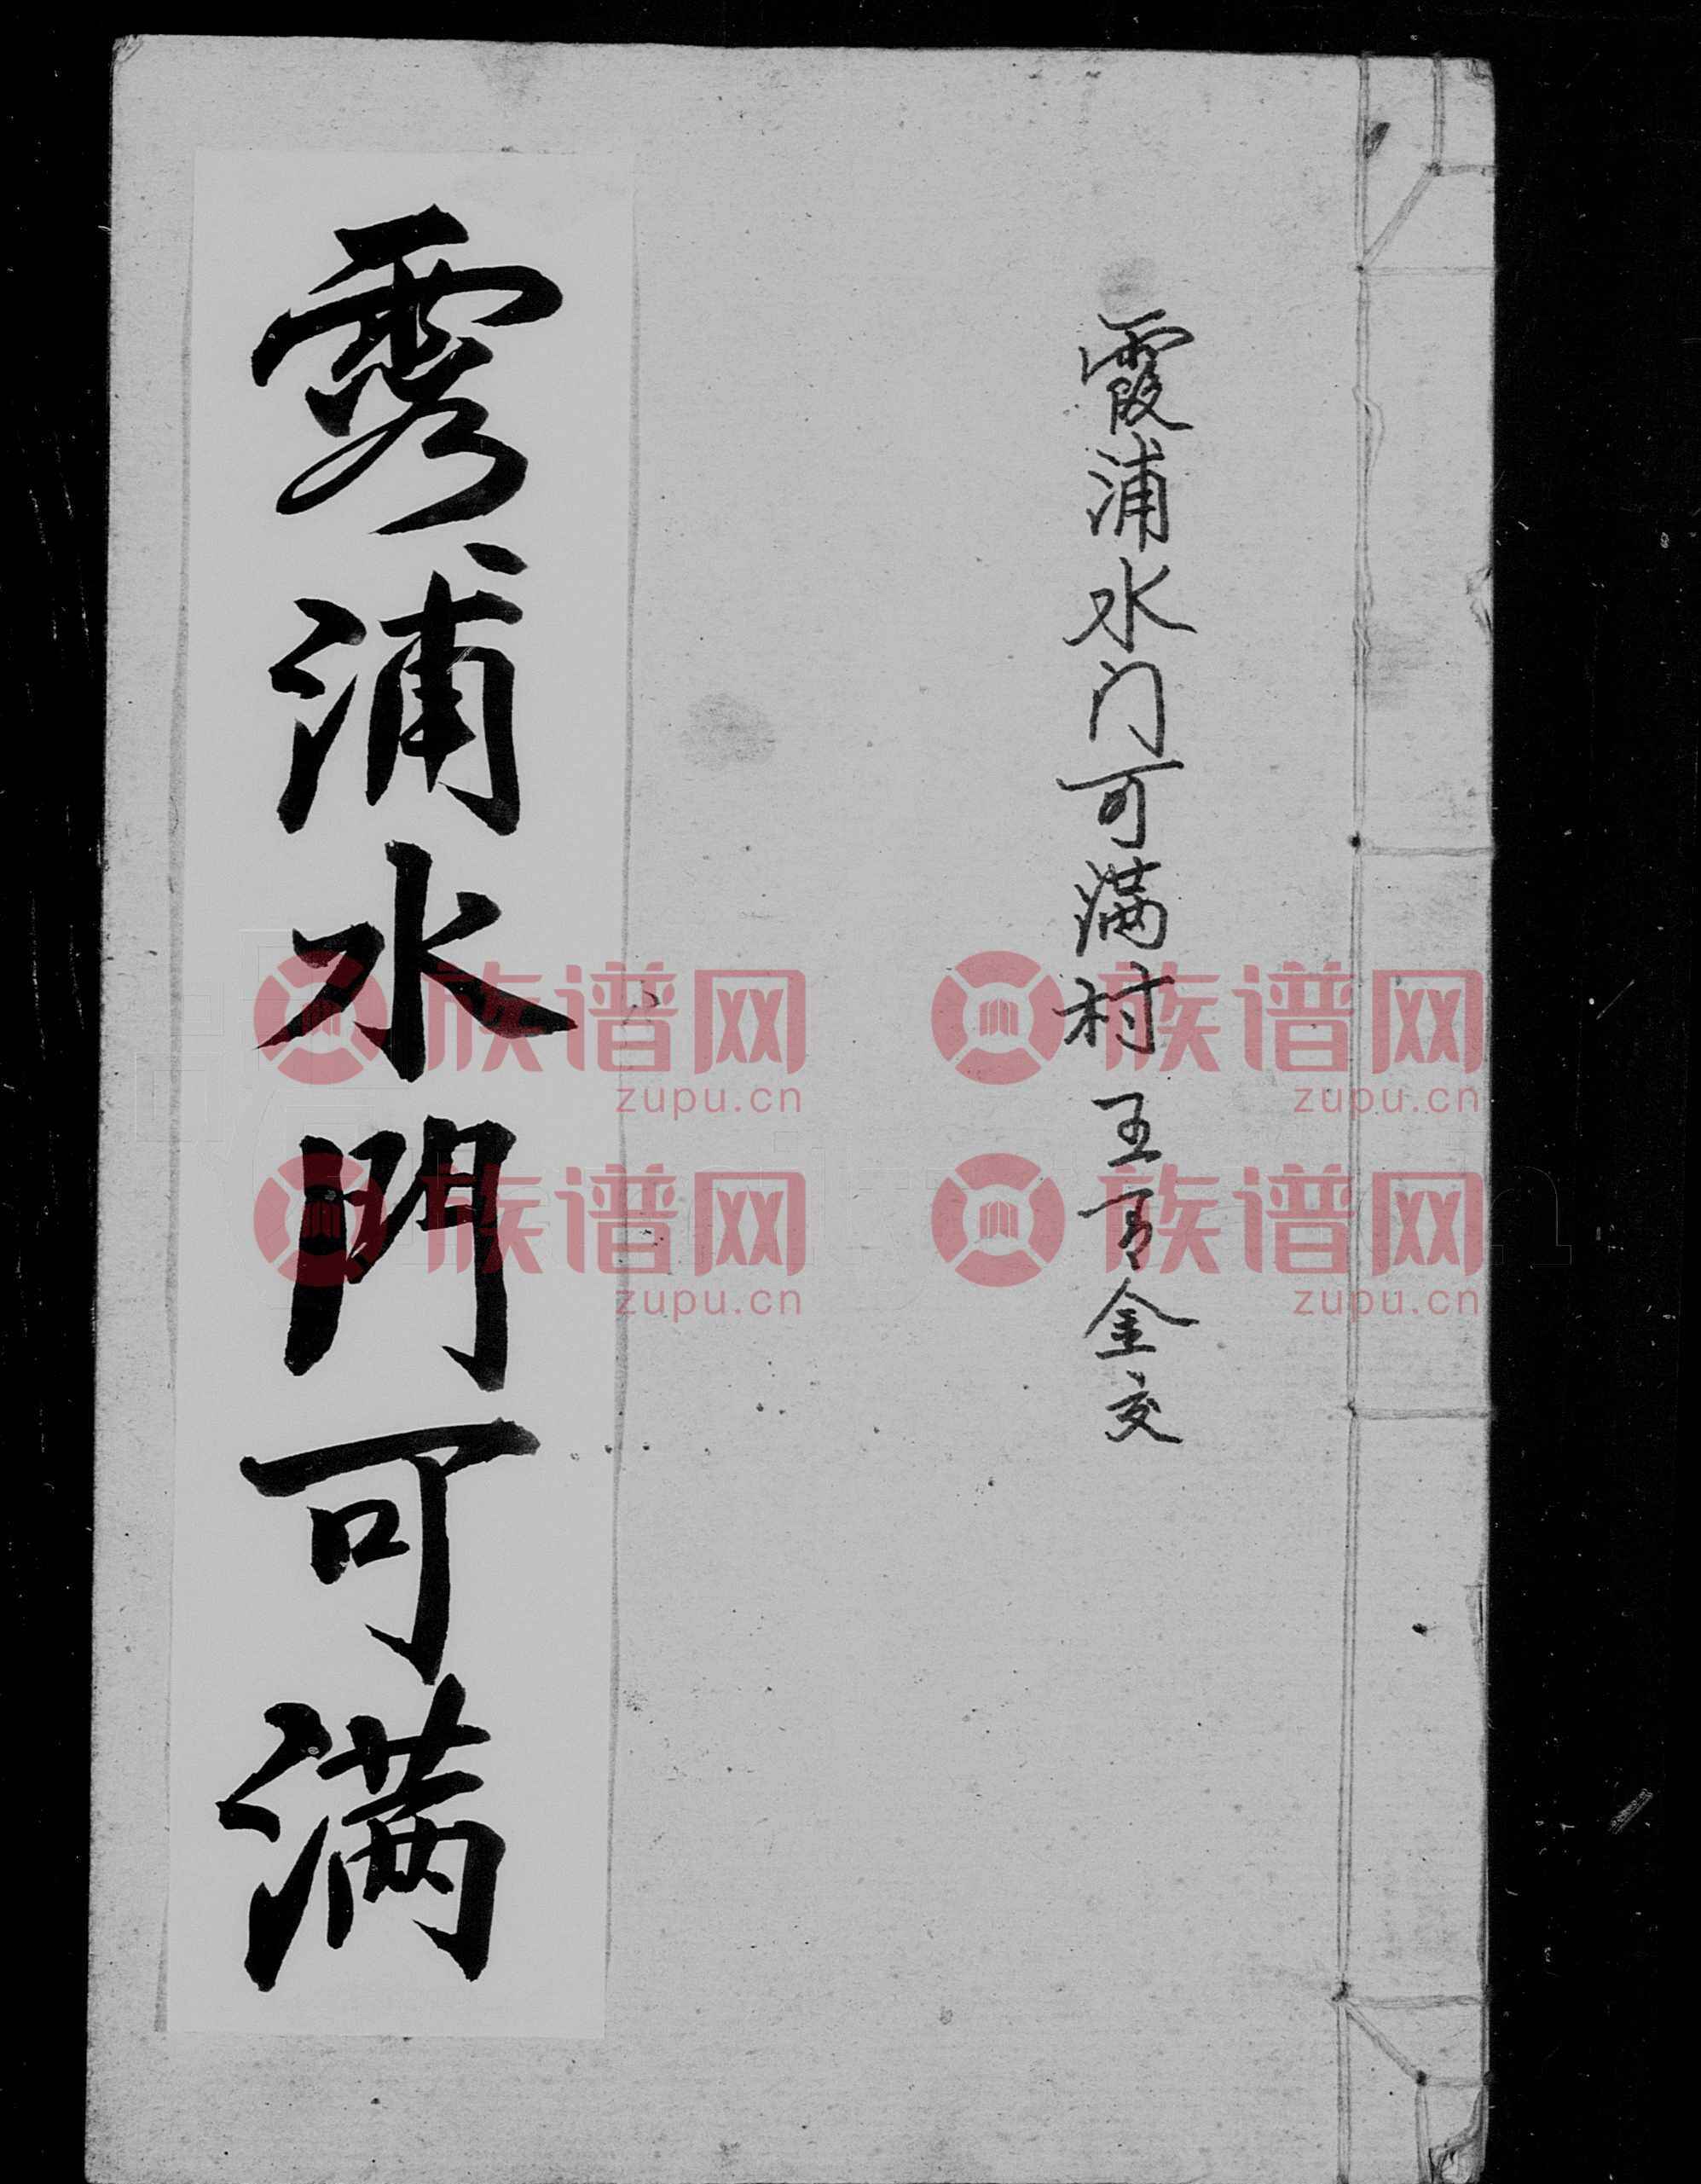 霞浦水门可满村 玉 金交
霞浦水門可满
族谱网
zupu.cn
族谱网
zupu.cn
族谱网
zupu.cn
族谱网
zupu.cn